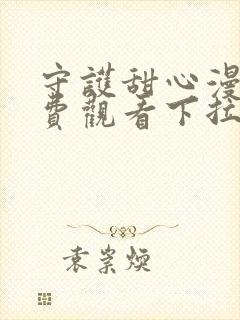 守護甜心漫
費觀看下拉
袁崇煥